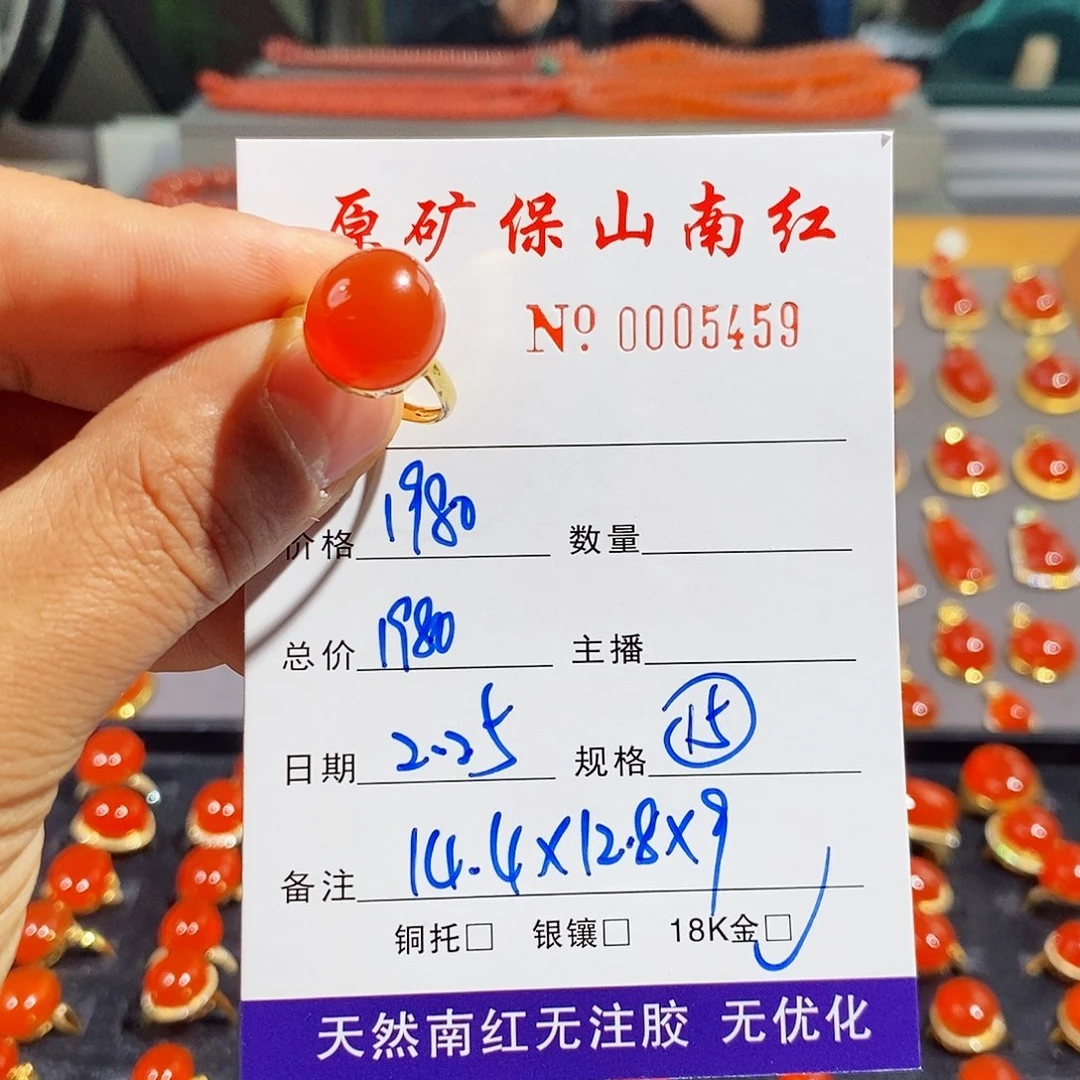 原矿保山南红
Nº 0005459
价格 1980 数量
总价 1980 主播
日期 2.25 规格 15
备注 14.4×12.8×9
铜托□ 银镶□ 18K金□
天然南红无注胶 无优化